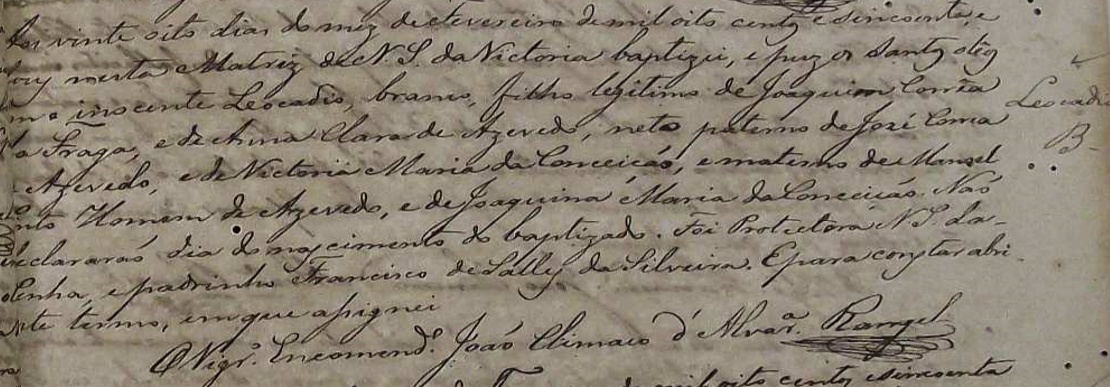 Aos vinte oito dias do mez de Fevereiro de mil oito centos e sincoenta, e
nesta Matriz de N. S. da Victoria baptizei, e puz os Santos oleos
inocente Leocadio, branco, filho legitimo de Joaquim Corrêa
Leocadio
da Fraga, e de Anna Clara de Azevedo, neto paterno de José Correa
B.
Azevedo, e de Victoria Maria da Conceicão, e materno de Manoel
Homem de Azevedo, e de Joaquina Maria da Conceicão. Não
declararaõ dia do nascimento do baptizado. Foi Protectora N. S. da
Penha, e padrinho Francisco de Salles da Silveira. E para constar abri
este termo, em que assignei
O Vigr.º Encomend.º João Climaco d'Alvar.ª Rangel
de mil oito centos e sincoenta